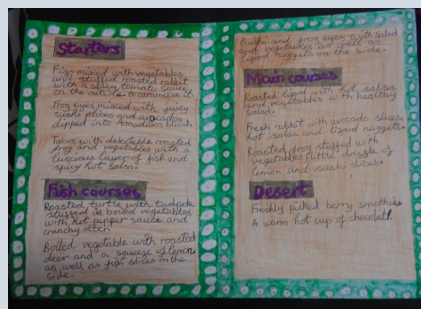 Starters
Frog mixed with vegetables
and stuffed roasted rabbit
with a spicy tomato sauce
on the outside to caramelise it.
Frog eyes mixed with juicy
sushi slices and avocados
dipped into Armadillos blood.
Tacos with delectable roasted
frog and vegetables with a
luscious layer of fish and
spicy hot salsa.
Fish courses
Roasted turtle with tadpole
stuffed in boiled vegetables
with hot pepper sauce and
crunchy otter.
Boiled vegetable with roasted
deer and a squeeze of lemon
as well as fish slices on the
side.
Sushi and frog eyes with salad
and vegetables as well as
lizard nuggets on the side.
Main courses
Roasted lizard with hot salsa
and vegetables with healthy
salad.
Fresh rabbit with avocado slices
hot salsa and lizard nuggets.
Roasted frog stuffed with
vegetables little drizzle of
lemon and sushi slices.
Desert
Freshly picked berry smoothie
A warm hot cup of chocolate.